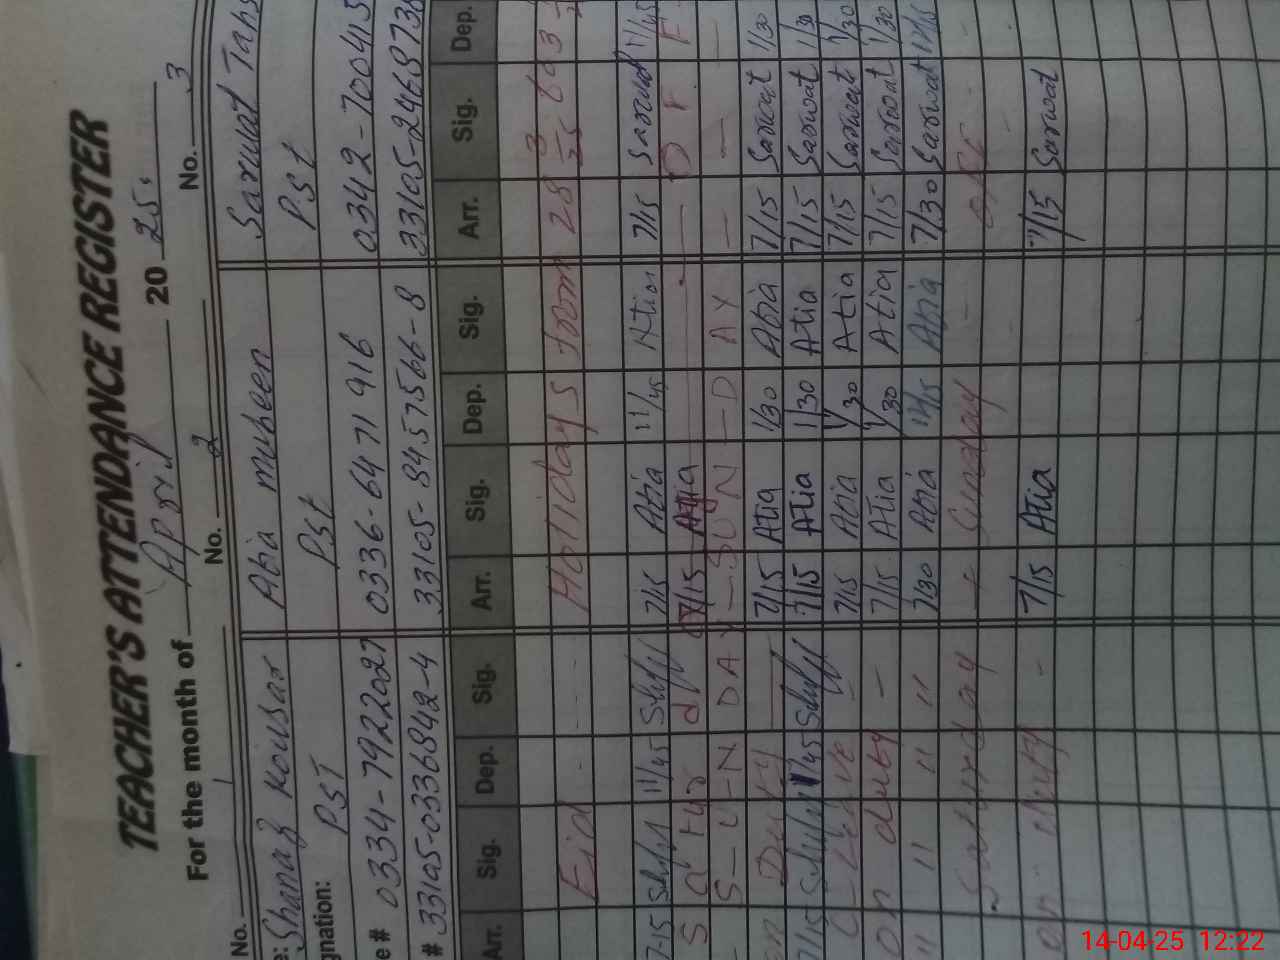 TEACHER'S ATTENDANCE REGISTER
For the month of April 2025.
No. 1 No. 2 No. 3
Shanaz Kousar Atia mubeen Sarwat
gnation: PST PSt PSt
e # 0334-7922027 0336-6471916 0342-700415
# 33105-0336842-4 33105-8457566-8 33105-2468738
Arr. Sig. Dep. Sig. Arr. Sig. Dep. Sig. Arr. Sig. Dep.
Eid - Holidays from 28
7-15 11/45 7/15 Atia 11/45 Atia 7/15 Sarwat 11/45
7/15 Atia
S-U-N DAY - SUN-D AY - -
Duty 7/15 Atia 1/30 Atia 7/15 Sarwat 1/30
7/15 1/45 7/15 Atia 1/30 Atia 7/15 Sarwat 1/30
C-Leave - 7/15 Atia 1/30 Atia 7/15 Sarwat 1/30
On duty - 7/15 Atia 1/30 Atia 7/15 Sarwat 1/30
" " " " 7/30 Atia 12/15 Atia 7/30 Sarwat 12/15
Saturday + Sunday
on duty - 7/15 Atia 7/15 Sarwat
14-04-25 12:22